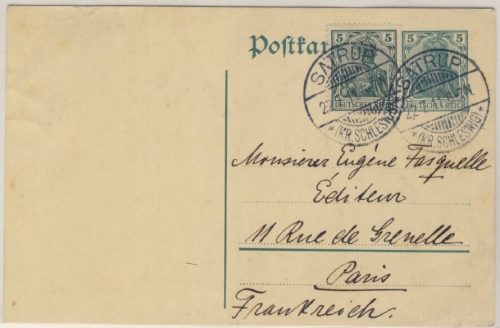 Postkar
5 5 5 5
DEUTSCHES REICH DEUTSCHES REICH
SATRUP SATRUP
* (KR. SCHLESWIG) *
Monsieur Eugène Fasquelle
Éditeur
11 Rue de Grenelle
Paris
Frankreich.